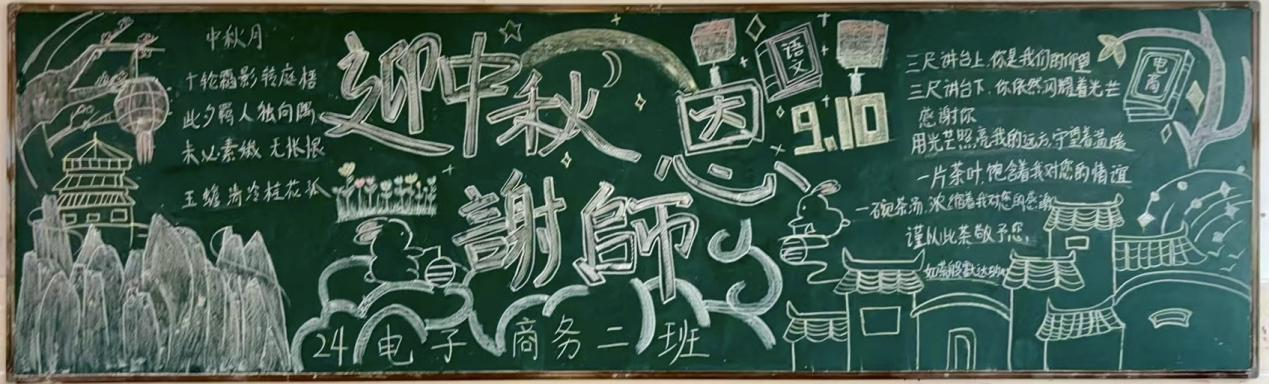 中秋月
十轮霜影转庭梧
此夕羁人独向隅
未必素娥无怅恨
玉蟾清冷桂花孤
迎中秋
恩
謝師
语文
9.10
三尺讲台上,你是我们的仰望
三尺讲台下,你依然闪耀着光芒
感谢你
用光芒照亮我的远方,守望着温暖
一片茶叶饱含着我对您的情谊
一碗茶汤浓缩着我对您的感谢
谨以此茶敬予您,
电商
24电子商务二班